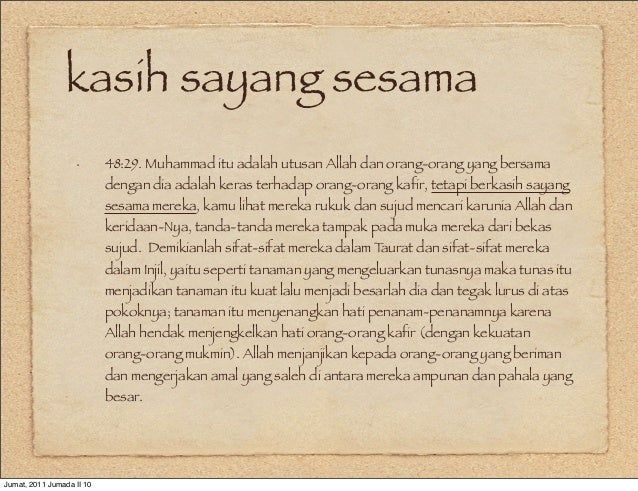 kasih sayang sesama
• 48:29. Muhammad itu adalah utusan Allah dan orang-orang yang bersama
dengan dia adalah keras terhadap orang-orang kafir, tetapi berkasih sayang
sesama mereka, kamu lihat mereka rukuk dan sujud mencari karunia Allah dan
keridaan-Nya, tanda-tanda mereka tampak pada muka mereka dari bekas
sujud. Demikianlah sifat-sifat mereka dalam Taurat dan sifat-sifat mereka
dalam Injil, yaitu seperti tanaman yang mengeluarkan tunasnya maka tunas itu
menjadikan tanaman itu kuat lalu menjadi besarlah dia dan tegak lurus di atas
pokoknya; tanaman itu menyenangkan hati penanam-penanamnya karena
Allah hendak menjengkelkan hati orang-orang kafir (dengan kekuatan
orang-orang mukmin). Allah menjanjikan kepada orang-orang yang beriman
dan mengerjakan amal yang saleh di antara mereka ampunan dan pahala yang
besar.
Jumat, 2011 Jumada II 10